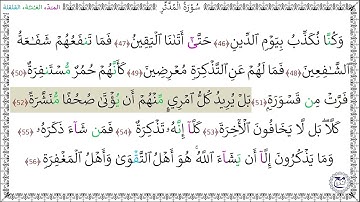 سُورَةُ المُدَّثِّرِ
المدّ، الغنّة، القلقلة
وَكُنَّا نُكَذِّبُ بِيَوْمِ الدِّينِ (46) حَتَّىٰٓ أَتَىٰنَا الْيَقِينُ (47) فَمَا تَنفَعُهُمْ شَفَـٰعَةُ
الشَّـٰفِعِينَ (48) فَمَا لَهُمْ عَنِ التَّذْكِرَةِ مُعْرِضِينَ (49) كَأَنَّهُمْ حُمُرٌ مُّسْتَنفِرَةٌ (50)
فَرَّتْ مِن قَسْوَرَةٍ (51) بَلْ يُرِيدُ كُلُّ امْرِئٍ مِّنْهُمْ أَن يُؤْتَىٰ صُحُفًا مُّنَشَّرَةً (52)
كَلَّا ۖ بَل لَّا يَخَافُونَ الْأٓخِرَةَ (53) كَلَّآ إِنَّهُۥ تَذْكِرَةٌ (54) فَمَن شَآءَ ذَكَرَهُۥ (55)
وَمَا يَذْكُرُونَ إِلَّآ أَن يَشَآءَ اللَّهُ ۚ هُوَ أَهْلُ التَّقْوَىٰ وَأَهْلُ الْمَغْفِرَةِ (56)